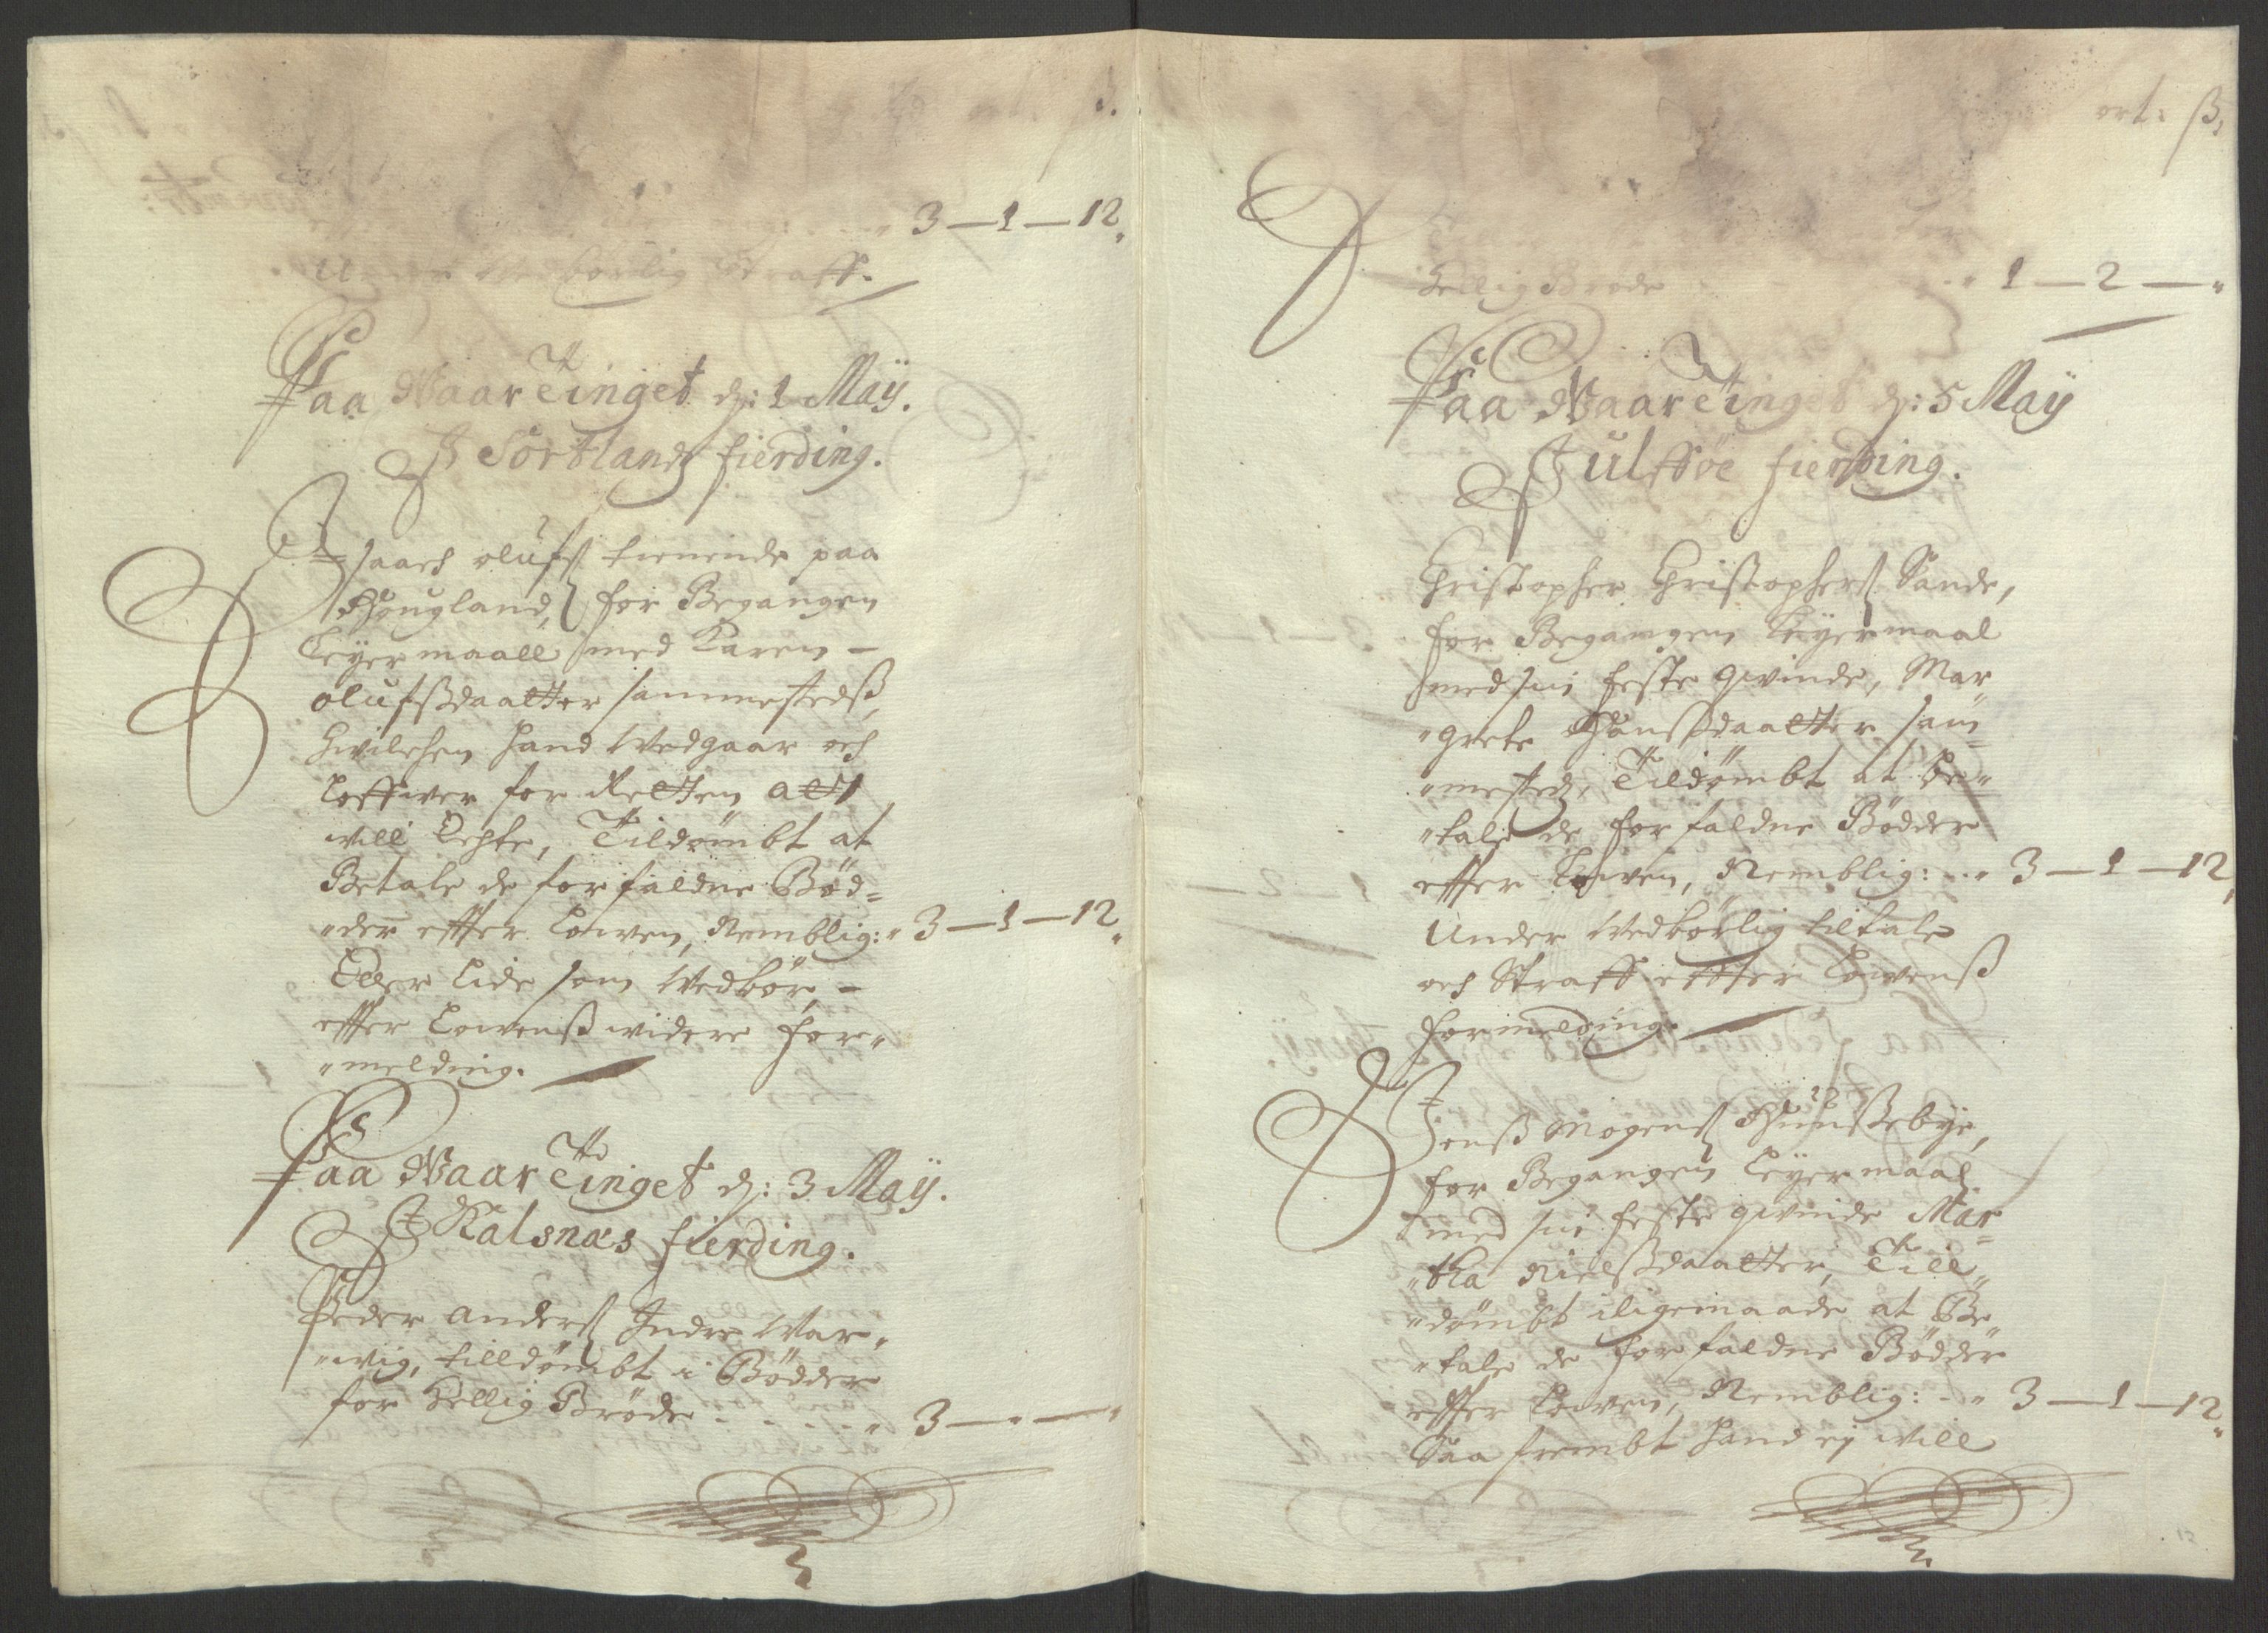 ß.
3 — 1 — 12
Under Vedbørlig Straff.
Paa Waar Tinget d: 1 Maÿ.
I Sortlands fierding.
Isaach olufs: tienende paa
Hougland, for Begangen
Leÿermaall med Karen —
olufsdaatter sammestedß,
hvilchen hand Vedgaar och
loffver for Retten att
will Echte, Tildømbt at
Betale de forfaldne Bød=
"der effter Lowen, Nemblig: 3 — 1 — 12
Eller Lide som Vedbør, —
effter Lowenß widere for"
"melding.
Paa Waar Tinget d: 3 Maÿ.
I Kalsnæs fierding.
Peder Anders: Indre War"
"wig, tilldømbt i Bødder
for Hellig Brøde - - - 3 — " — "
ort: ß,
Hellig Brøde 1 — 2 — "
Paa Waar Tinget d: 5 Maÿ
I Ulfføe fierding.
Christopher Christophers: Sande,
for Begangen Leÿermaal
med sin feste Qvinde, Mar"
"grete Hansdaatter sam=
"mesteds, Tildømbt at be"
"tale de forfaldne Bødder
effter Lowen, Nemblig: 3 — 1 — 12
Under Vedbørlig tiltale
och Straff effter Lowenß
formelding.
Jenß Mogens: Hunßebÿe,
for Begangen Leÿermaal
med sin feste Qvinde Mar=
"tha Nielsdaatter, Till"
"dømbt iligemaade at Be"
"tale de forfaldne Bødder
effter Lowen, Nemblig: 3 — 1 — 12
Saa frembt hand ej will